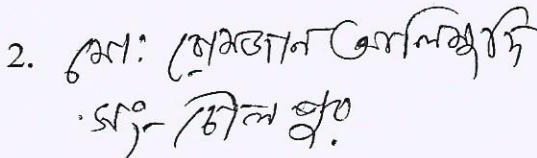 2. মোঃ রোমজান আলিমুদ্দি
সাং- চৌলপুর